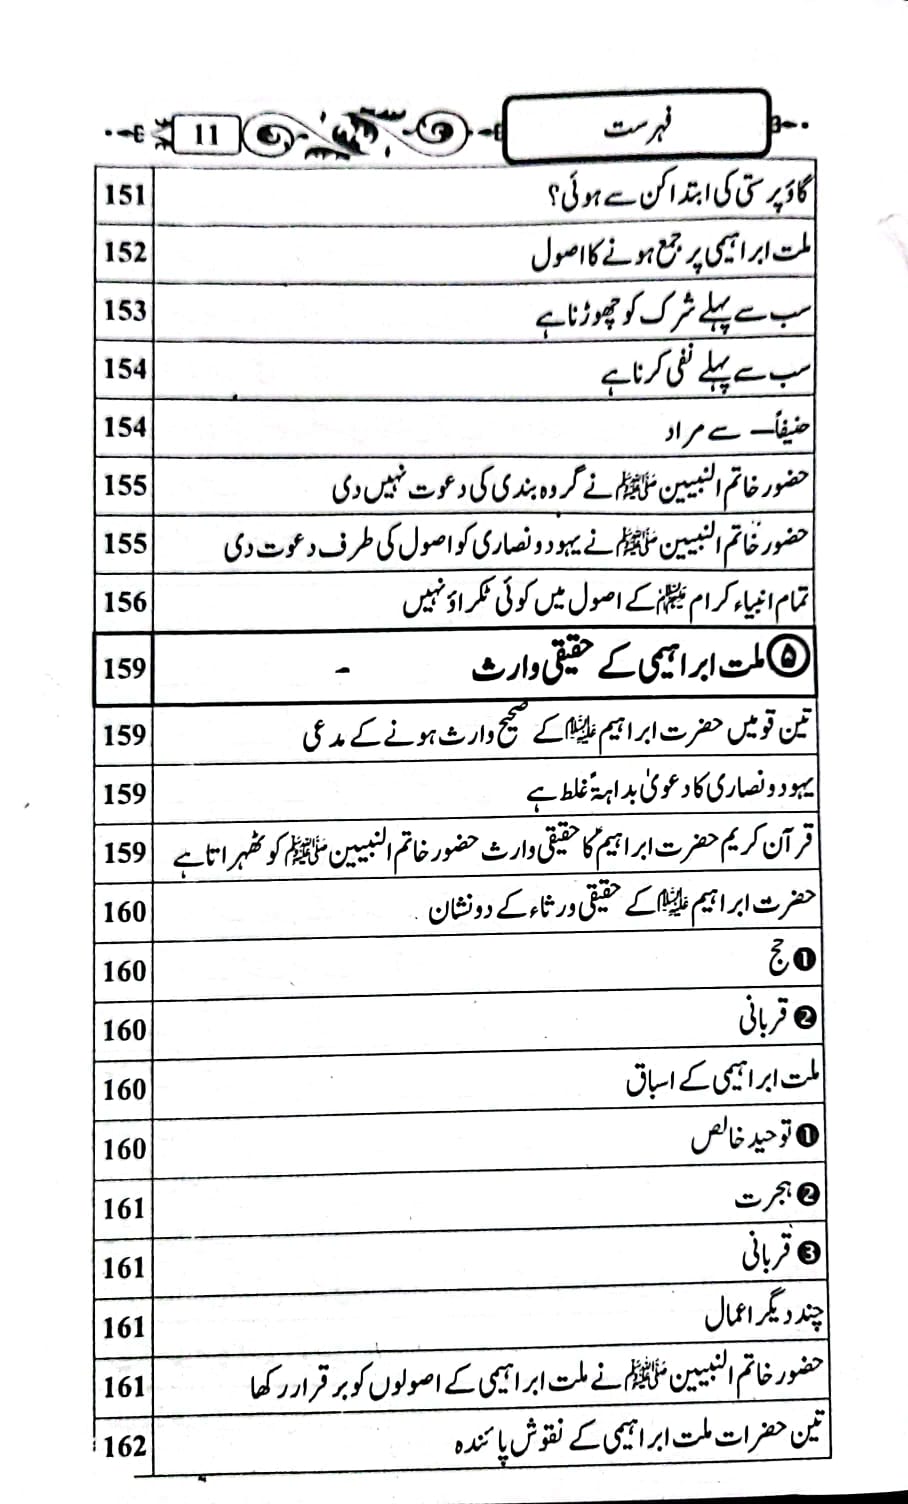 فہرست 11
گاؤ پرستی کی ابتدا کن سے ہوئی؟ 151
ملت ابراہیمی پر جمع ہونے کا اصول 152
سب سے پہلے شرک کو چھوڑنا ہے 153
سب سے پہلے نفی کرنا ہے 154
حنیفاً سے مراد 154
حضور خاتم النبیین ﷺ نے گروہ بندی کی دعوت نہیں دی 155
حضور خاتم النبیین ﷺ نے یہود و نصاریٰ کو اصول کی طرف دعوت دی 155
تمام انبیاء کرام علیہم السلام کے اصول میں کوئی ٹکراؤ نہیں 156
۵ ملت ابراہیمی کے حقیقی وارث - 159
تین قومیں حضرت ابراہیم علیہ السلام کے صحیح وارث ہونے کے مدعی 159
یہود و نصاری کا دعویٰ بداہۃً غلط ہے 159
قرآن کریم حضرت ابراہیمؑ کا حقیقی وارث حضور خاتم النبیین ﷺ کو ٹھہراتا ہے 159
حضرت ابراہیم علیہ السلام کے حقیقی ورثاء کے دو نشان 160
❶ حج 160
❷ قربانی 160
ملت ابراہیمی کے اسباق 160
❶ توحید خالص 160
❷ ہجرت 161
❸ قربانی 161
چند دیگر اعمال 161
حضور خاتم النبیین ﷺ نے ملت ابراہیمی کے اصولوں کو برقرار رکھا 161
تین حضرات ملت ابراہیمی کے نقوش پائندہ 162